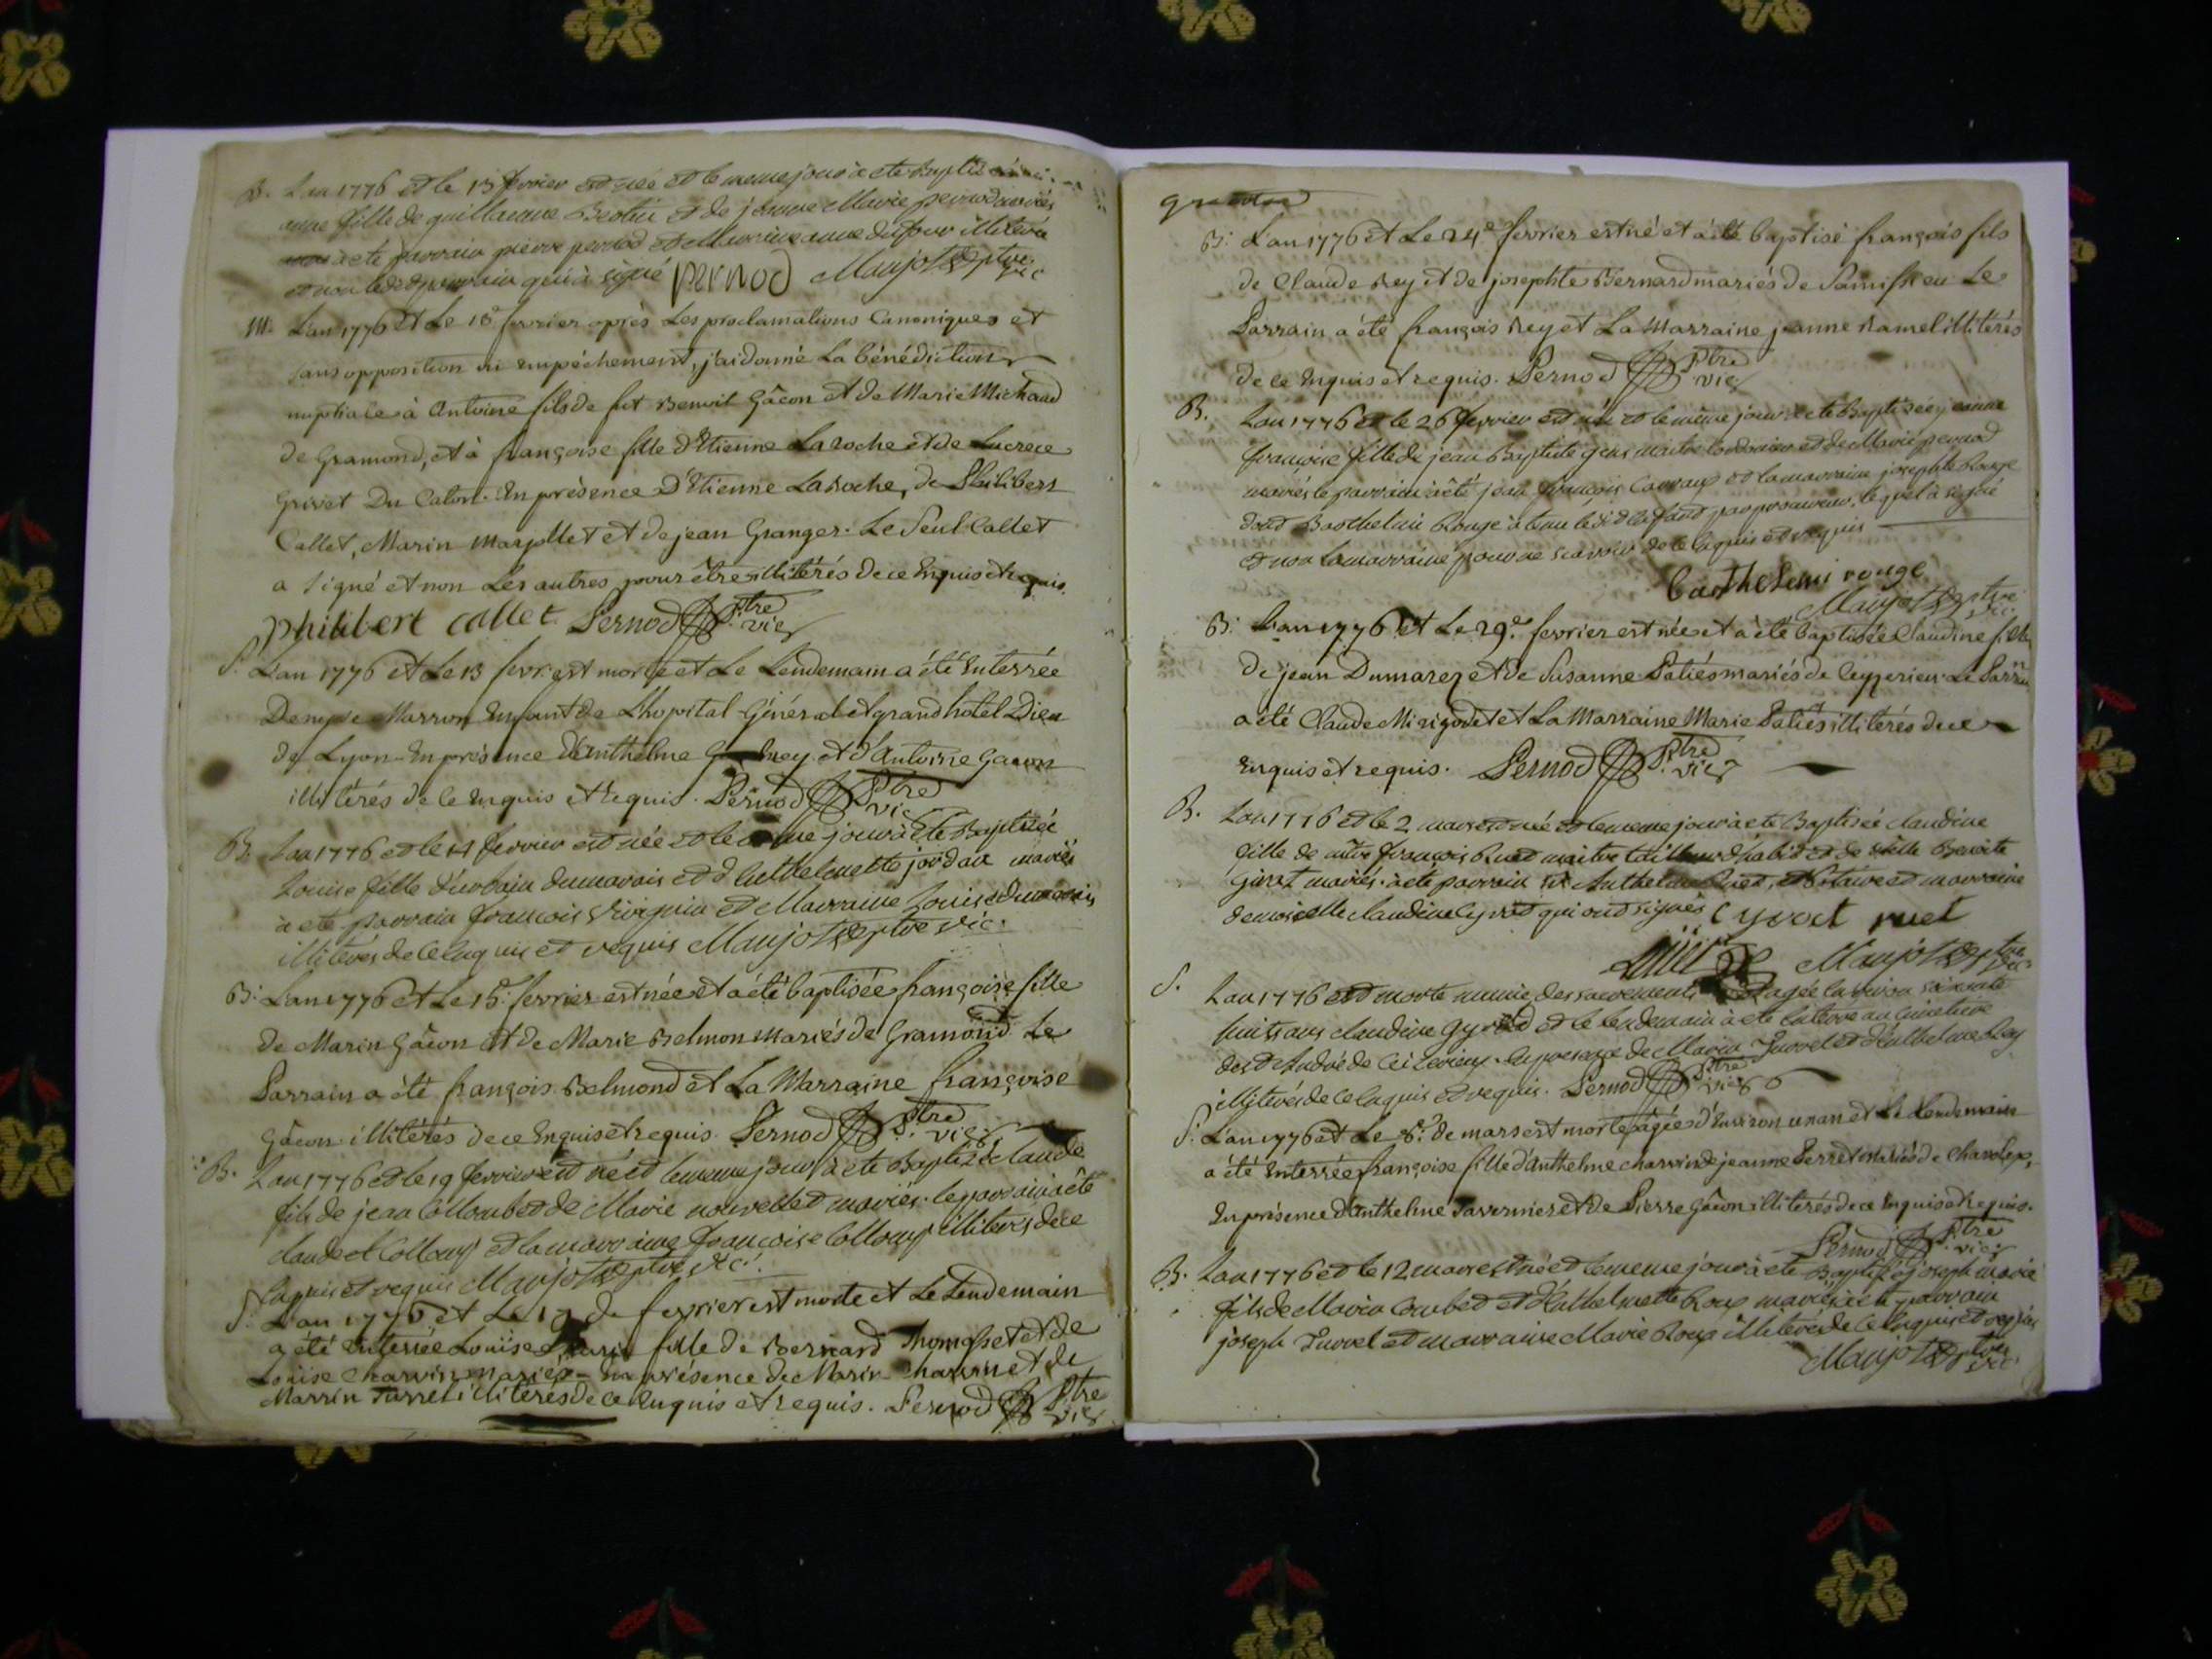 B. Lan 1776 et le 13 fevrier est née et le meme jour à ete Baptisée
anne fille de guillaume Beotui et de jeanne Marie pernod mariés
à ete parrain pierre pernod et Marraine anne dufour illiteré
et non ledit parrain qui à signé pernod Maujot ptre vic
M. L'an 1776 et Le 18e fevrier après Les proclamations Canoniques et
sans opposition ni empéchement, j'ai donné La bénédiction
nuptiale à Antoine fils de fut Benoit Gâcon et de Marie Michaud
de Gramond, et à françoise fille d'Etienne Laroche et de Lucrece
Grivet Du Caton. En présence D'Etienne Laroche, de Philibert
Callet, Marin Marjollet et de jean Granger. Le Seul Callet
a signé et non Les autres pour être illitérés de ce Enquis et requis.
philibert callet Pernod Ptre vic
S. L'an 1776 et Le 13 fevr. est morte et Le Lendemain a été Enterrée
Denyse Marron Enfant de L'hopital Général et grand hotel Dieu
de Lyon En présence d'Anthelme Rey et d'Antoine Gacon
illitérés de ce Enquis et requis. Pernod Ptre vic
B. Lan 1776 et le 14 fevrier est née et le meme jour à Eté Baptisée
Louise fille d'urbain dumarais et d'Anthelmette jordan mariés
à ete parrain francois Virignin et Marraine Louise dumarais
illiterés de ce Enquis et requis Maujot ptre vic.
B: L'an 1776 et Le 15e fevrier est née et a été baptisée françoise fille
de Marin Gâcon et de Marie Belmon Mariés de Gramond. Le
Parrain a été françois Belmond et La Marraine françoise
Gâcon illitérés de ce Enquis et requis. Pernod Ptre vic
B. Lan 1776 et le 19 fevrier est né et le meme jour à ete Baptisé claude
fils de jean Collomb et de Marie nouvellet mariés. le parrain a ête
claude Collomb et la marraine francoise Collomb illiterés de ce
Enquis et requis Maujot ptre vic.
S. L'an 1776 et Le 19 de fevrier est morte et Le Lendemain
a été Enterrée Louïse fille de Bernard Thomasset et de
Louise Charvin Mariés - En présence de Marin Charvin et de
Marrin Farrel illiterés de ce Enquis et requis. Pernod Ptre vic
B: L'an 1776 et Le 24e fevrier est né et à été baptisé françois fils
de Claude Rey et de josephte Bernard mariés de Samissieu Le
Parrain a été françois Rey et La Marraine jeanne Ramel illitérés
de ce Enquis et requis. Pernod Ptre vic
B. Lan 1776 et le 26 fevrier est née et le même jour à ete Baptisée jeanne
francoise fille de jean Baptiste gens maitre cordonier et de Marie pernod
mariés le parrain à été jean françois et la marraine josephte Rouge
dont Barthelmi Rouge à tenu le dit Enfant par procureur, lequel à signé
et non la marraine pour ne scavoir de ce Enquis et requis
barthelemi rouge
Maujot ptre vic.
B: L'an 1776 et Le 29e fevrier est née et à été baptisée Claudine fille
de jean Dumarez et de Susanne Paties mariés de Ceyzerieu Le Parrain
a été Claude Mirigodet et La Marraine Marie Paties illitérés de ce
Enquis et requis. Pernod Ptre vic
B. Lan 1776 et le 2 mars est née et le meme jour à ete Baptisée claudine
fille de mtre françois Ruet maitre tailleur d'habit et de delle Benoite
mariés. à ete parrain sr Anthelme Ruet, Notaire et marraine
demoiselle claudine Cyvoct qui ont signés Cyvoct ruet
Ruet Maujot ptre vic.
S. Lan 1776 est morte munie des sacrements et agée Environ soixante
huits ans claudine et le lendemain à ete Enterré au cimetiere
de St André de Ceizerieu. En presence de Marin Jurret et d'Anthelme Rey
illiterés de ce Enquis et requis. Pernod Ptre vic
S. L'an 1776 et Le 8e de mars est morte agée d'Environ un an et Le Lendemain
a été Enterrée françoise fille d'Anthelme charvin de jeanne Perret Mariés de
En présence d'Anthelme Tavernier et de Pierre Gâcon illitérés de ce Enquis et requis.
Pernod Ptre vic
B. Lan 1776 et le 12 mars est né et le meme jour à ete Baptisé joseph marie
fils de Marin Combet et d'Anthelmette Roux mariés à ete parrain
joseph Jurret et marraine Marie Roux illiterés de ce Enquis et requis
Maujot ptre vic.